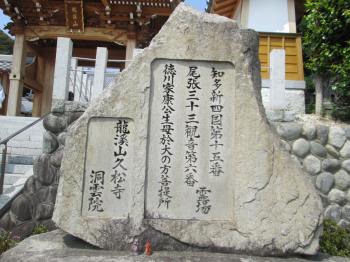 知多新四国第十五番
尾張三十三観音第六番 霊場
徳川家康公生母於大の方菩提所
龍溪山久松寺
洞雲院